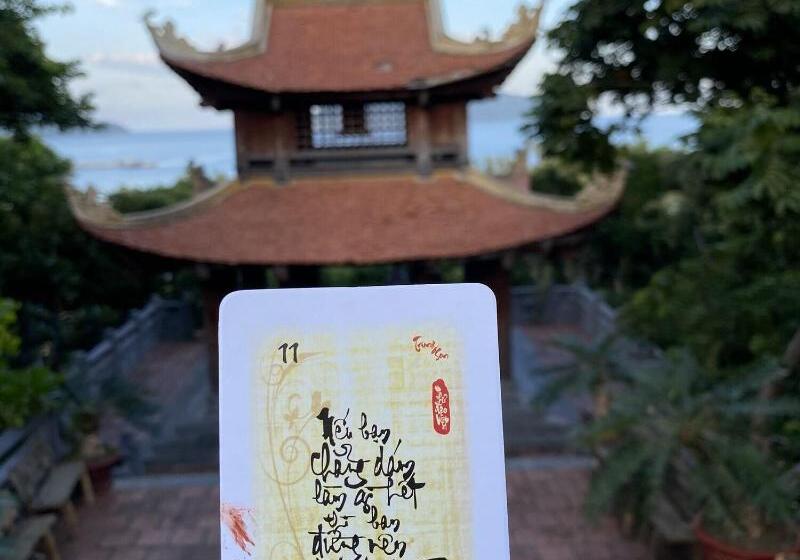 11
Trung Sơn
Nếu bạn
chẳng dám
làm gì hết
thì bạn
đừng nên